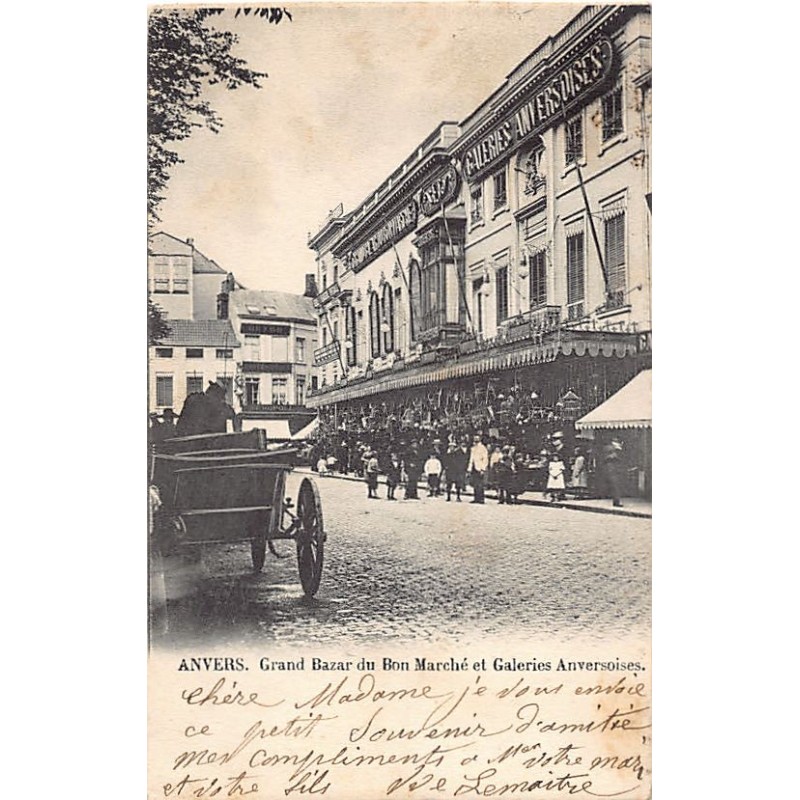 GALERIES ANVERSOISES
ANVERS. Grand Bazar du Bon Marché et Galeries Anversoises.
chère Madame je vous envoie
ce petit Souvenir d'amitié
mes compliments a Mr votre mari
et votre fils Ve Lemaitre